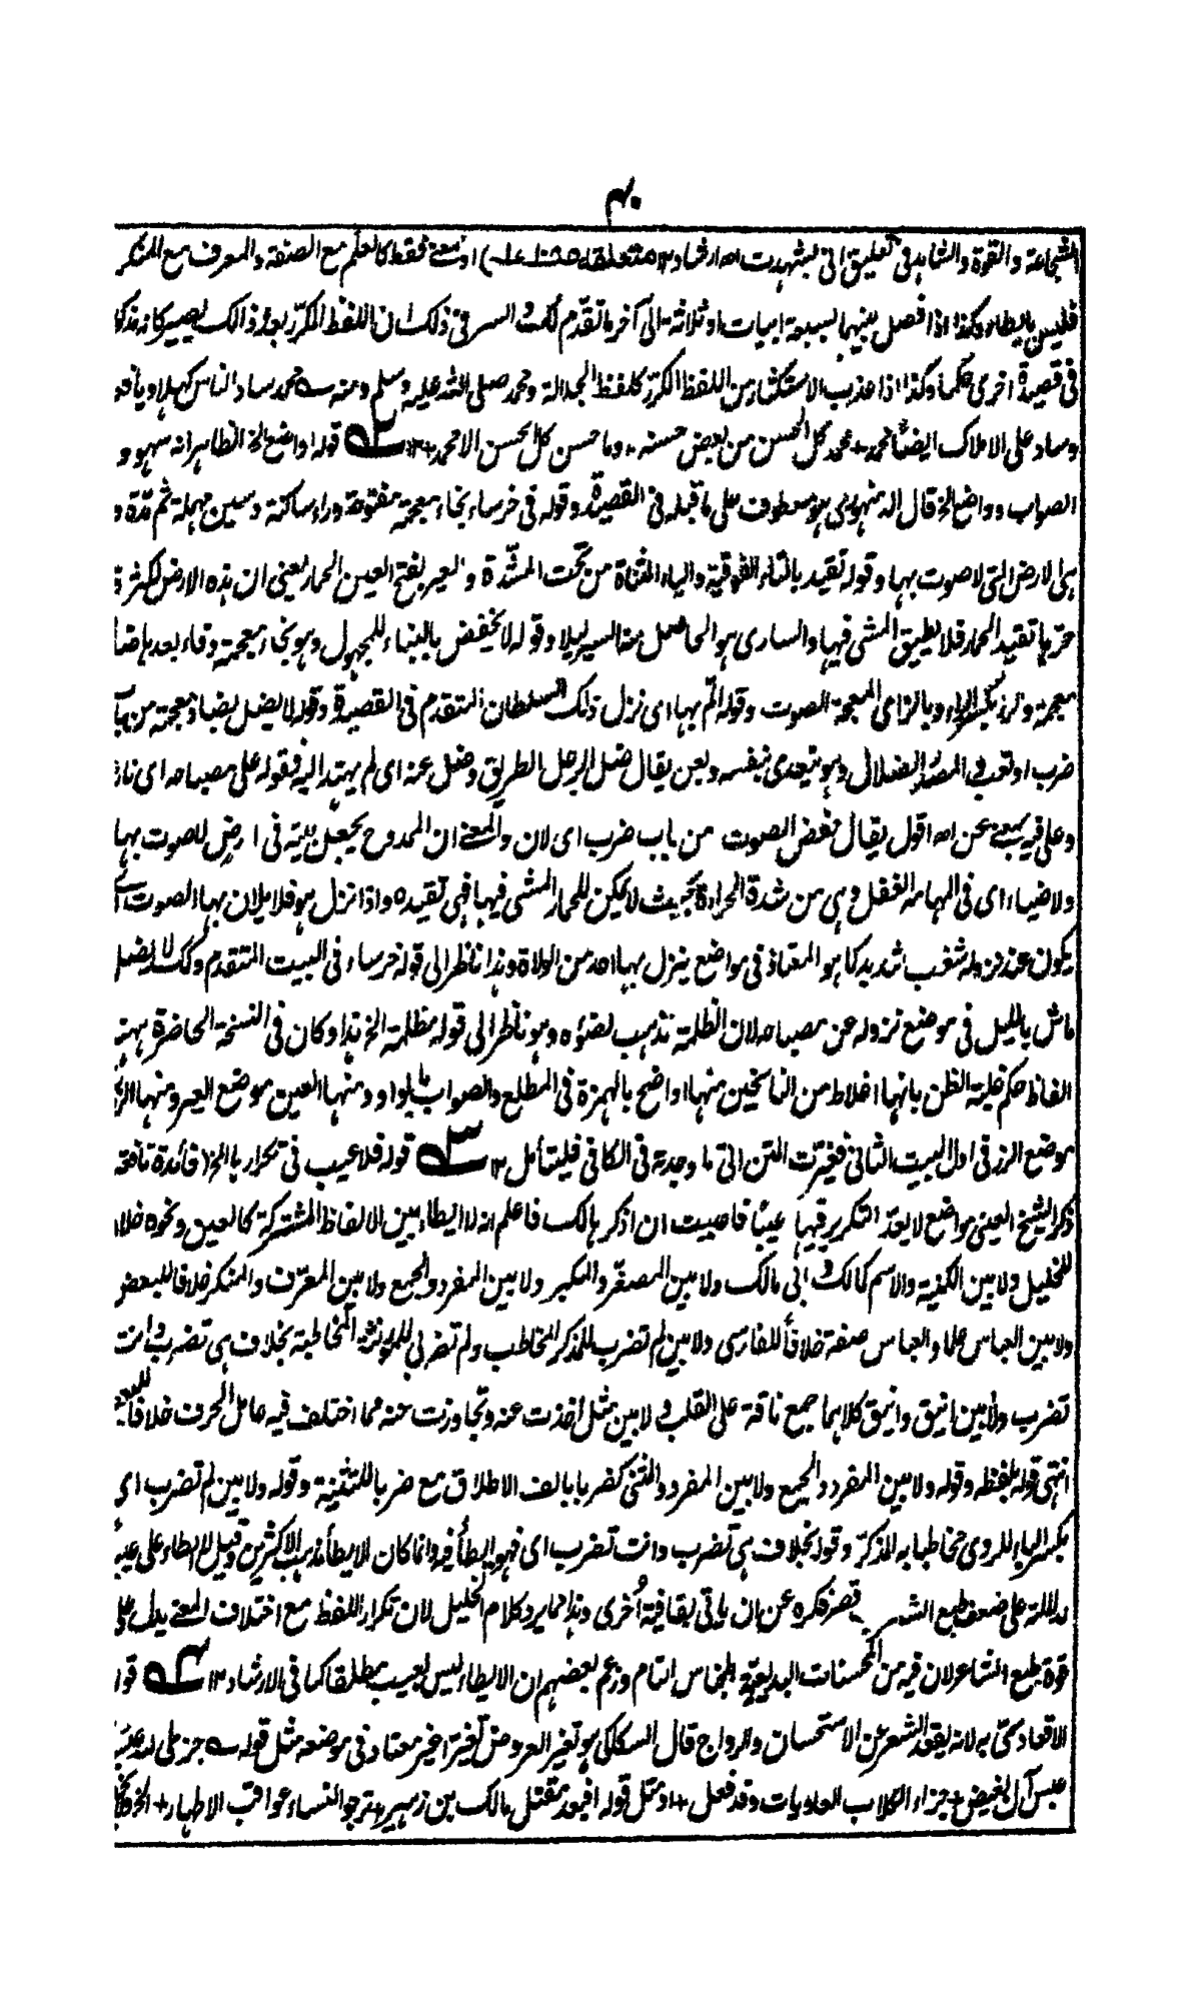 ۴۰
الشجاعة والقوة والشاهد في تعليق اني لتشهدت اه ارشاد ۱۲ (متعلقه صفحه هذا) او معنى فقط كالعلم مع الصفة والمعرف مع المنكر
فليس بايطاء وكذا اذا فصل بينهما سبعة ابيات او ثلاثة الى آخر ما تقدم قلت والسر في ذلك ان اللفظ المكرر بعد ذالك يصير كانه مذكور
في قصيدة اخرى حكما وكذا اذا عذب الاستكثار من اللفظ المكرر كلفظ الجلالة ومحمد صلى الله عليه وسلم ومنه محمد ساد الناس كهلا ويافعا
وساد على الاملاك ايضا محمد + محمد كل الحسن من بعض حسنه + وما حسن كل الحسن الا محمد + ۱۲ قوله او اضع الخ الظاهر انه سهو و
الصواب وواضع الخ قال الدمنهوري هو معطوف على ما قبله في القصيدة وقوله في خرساء بخاء معجمة مفتوحة وراء ساكنة وسين مهملة ثم مدة و
هي الارض التي لا صوت بها وقوله تقيد بالتاء الفوقية والياء المثناة من تحت المشددة والعير بفتح العين الحمار يعني ان هذه الارض لكثرة
حرها تقيد الحمار فلا يطيق المشي فيها والساري هو الحاصل منه السير ليلا وقوله لا يخفض بالبناء للمجهول وهو بخاء معجمة وفاء بعدها ضاد
معجمة والرز بكسر الراء وبالزاى المعجمة الصوت وقوله الم بها اى نزل ذلك السلطان المتقدم في القصيدة وقوله لا يضل بضاد معجمة من باب
ضرب او تعب والمصدر الضلال وهو يتعدى بنفسه وبعن يقال ضل الرجل الطريق وضل عنه اى لم يهتد اليه فقوله على مصباحه اى ناره
وعلى فيه بمعنى عن اه اقول يقال خفض الصوت من باب ضرب اى لان والمعنى ان الممدوح يجعل بيته في ارض لا صوت بها
ولا ضياء اى في المهامه الغفل وهي من شدة الحرارة بحيث لا يمكن للحمار المشي فيها فهي تقيده واذا نزل هو فلا يلان بها الصوت
يكون عند نزوله شغب شديد كما هو المعتاد في مواضع ينزل بها احد من الولاة وهذا ناظر الى قوله خرساء في البيت المتقدم وكذا لا يضل
ماش بالليل في موضع نزوله عن مصباحه لان الظلمة تذهب بضوءه وهو ناظر الى قوله مظلمة الخ هذا وكان في النسخة الحاضرة ههنا
الفاظ حكم غلبة الظن بانها اغلاط من الناسخين منها او اضح بالهمزة في المطلع والصواب بالواو ومنها العين موضع العير ومنها الرزق
موضع الرز في اول البيت الثاني فغيرت المتن الى ما وجدته في الكافي فليتأمل ۱۲ قوله فلا عيب في تكرارها الخ فائدة نافعة
ذكر الشيخ العيني مواضع لا يعد التكرير فيها عيبا فاحببت ان اذكرها لك فاعلم انه لا ايطاء بين الالفاظ المشتركة كالعين ونحوه خلافا
للخليل ولا بين الكنية والاسم كمالك وابى مالك ولا بين المصغر والمكبر ولا بين المفرد والجمع ولا بين المعرف والمنكر خلافا للبعض
ولا بين العباس علما والعباس صفة خلافا للفارسي ولا بين لم تضرب للمذكر المخاطب ولم تضربي للمؤنثة المخاطبة بخلاف هي تضرب وانت
تضرب ولا بين انيق واينق كلاهما جمع ناقة على القلب ولا بين مثل اخذت عنه وتجاوزت عنه مما اختلف فيه عامل الحرف خلافا للبعض
انتهى قوله بلفظه وقوله ولا بين المفرد والجمع ولا بين المفرد والمثنى كضربا بالف الاطلاق مع ضربا للتثنية وقوله ولا بين لم تضرب اى
بكسر الباء للروي مخاطبا به المذكر وقوله بخلاف هي تضرب وانت تضرب اى فهو ايطاء فيه وانما كان الايطاء مذهب الاكثرين وقيل الايطاء على عيب
دلالة على ضعف طبع الشعر وقصر فكره عن ان ياتى بقافية أخرى وهذا مما يرد كلام الخليل لان تكرار اللفظ مع اختلاف المعنى يدل على
قوة طبع الشاعر لان فيه من المحسنات البديعية الجناس التام وزعم بعضهم ان الايطاء ليس بعيب مطلقا كما في الارشاد ۱۲ قوله
الاقعاد سمي به لانه يقعد الشعر عن الاستحسان والرواج قال السكاكي هو تغير العروض تغيرا غير معتاد في موضعه مثل قوله جزى الله عبسا
عبس آل بغيض + جزاء الكلاب العاويات وقد فعل + او مثل قوله افبعد مقتل مالك بن زهير + ترجو النساء عواقب الاطهار + الخ